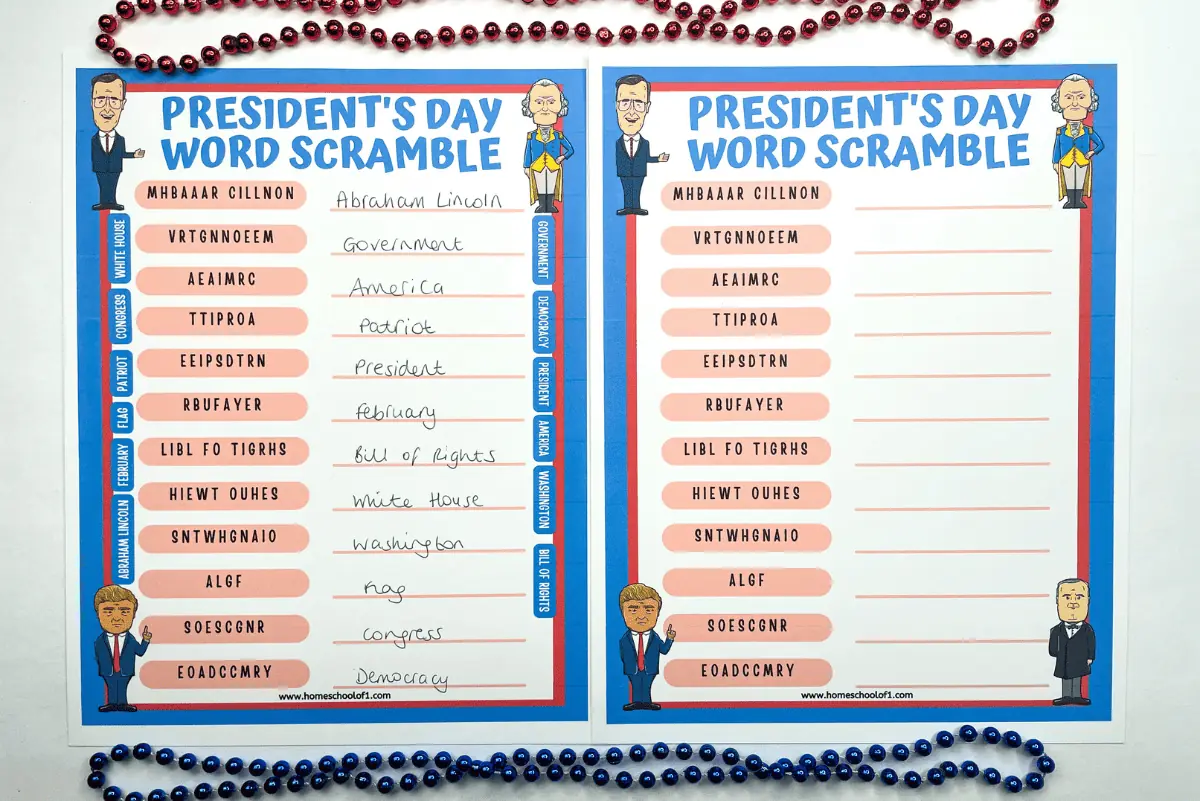 PRESIDENT'S DAY
WORD SCRAMBLE
MHBAAAR CILLNON Abraham Lincoln
VRTGNNOEEM Government
AEAIMRC America
TTIPROA Patriot
EEIPSDTRN President
RBUFAYER february
LIBL FO TIGRHS Bill of Rights
HIEWT OUHES White House
SNTWHGNAIO Washington
ALGF Flag
SOESCGNR congress
EOADCCMRY Democracy
WHITE HOUSE
CONGRESS
PATRIOT
FLAG
FEBRUARY
ABRAHAM LINCOLN
GOVERNMENT
DEMOCRACY
PRESIDENT
AMERICA
WASHINGTON
BILL OF RIGHTS
www.homeschoolof1.com
PRESIDENT'S DAY
WORD SCRAMBLE
MHBAAAR CILLNON
VRTGNNOEEM
AEAIMRC
TTIPROA
EEIPSDTRN
RBUFAYER
LIBL FO TIGRHS
HIEWT OUHES
SNTWHGNAIO
ALGF
SOESCGNR
EOADCCMRY
www.homeschoolof1.com